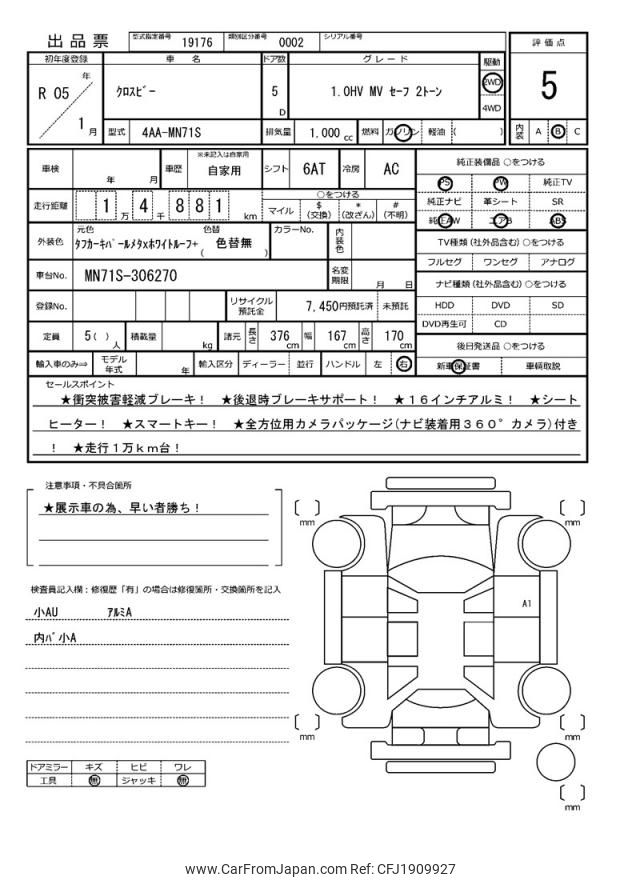 出品票 型式指定番号 19176 類別区分番号 0002 シリアル番号
評価点
5
初年度登録 車名 ドア数 グレード 駆動
R 05 年 1 月
クロスビー 5 D 1.0HV MV セーフ 2トーン 2WD
4WD
型式 4AA-MN71S 排気量 1.000 cc 燃料 ガソリン 軽油 ( ) 内装 A B C
車検 年 月 車歴 ※未記入は自家用 自家用 シフト 6AT 冷房 AC
走行距離 1 万 4 千 8 8 1 km ○をつける
マイル $(交換) *(改ざん) #(不明)
外装色 元色 色替 カラーNo. 内装色
タフカーキパールメタxホワイトルーフ+ ( 色替無 )
車台No. MN71S-306270 名変期限 月 日
登録No. リサイクル預託金 7,450円預託済 未預託
定員 5( )人 積載量 kg 諸元 長さ 376 cm 幅 167 cm 高さ 170 cm
輸入車のみ⇒ モデル年式 年 輸入区分 ディーラー 並行 ハンドル 左 右
純正装備品 ○をつける
PS PW 純正TV
純正ナビ 革シート SR
純正AW エアB ABS
TV種類(社外品含む)○をつける
フルセグ ワンセグ アナログ
ナビ種類(社外品含む)○をつける
HDD DVD SD
DVD再生可 CD
後日発送品 ○をつける
新車保証書 車輌取説
セールスポイント
★衝突被害軽減ブレーキ! ★後退時ブレーキサポート! ★16インチアルミ! ★シート
ヒーター! ★スマートキー! ★全方位用カメラパッケージ(ナビ装着用360°カメラ)付き
! ★走行1万km台!
注意事項・不具合箇所
★展示車の為、早い者勝ち!
検査員記入欄:修復歴「有」の場合は修復箇所・交換箇所を記入
小AU アルミA
内バ小A
ドアミラー キズ ヒビ ワレ
工具 無 ジャッキ 無
mm
mm
A1
mm
mm
mm
www.CarFromJapan.com Ref: CFJ1909927